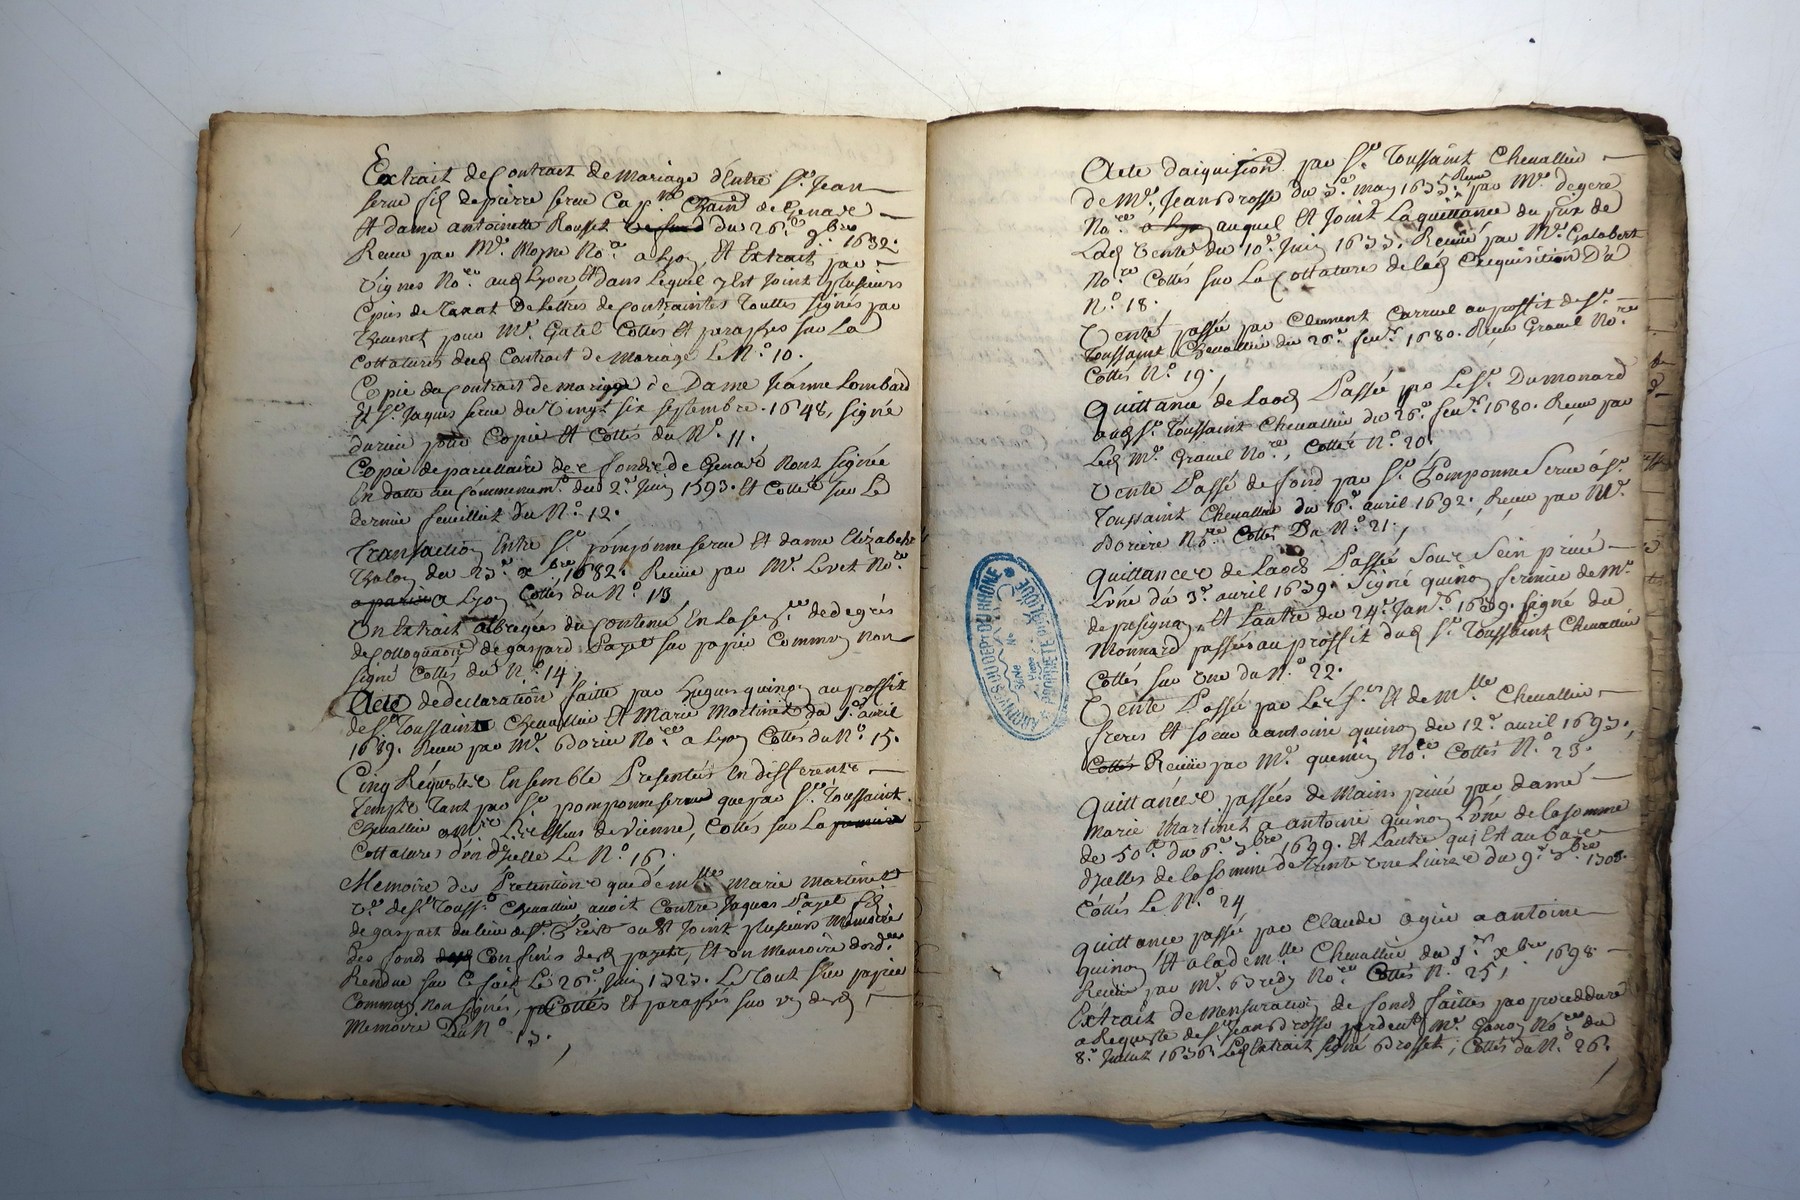 Extrait de Contrait de Mariage d'Entre Sr. Jean
serue fils de pierre serue Cap.ne de Genas
Et dame antoinette Rousset du 26.e 9bre 1632.
Receu par Me. No.re a Lyon, Et Extrait par
vignes No.re aud Lyon Et dans Lequel y Est Joint plusieurs
Copies de Lettres de Contraintes Touttes signés par
Thuenot pour Mr. Gatel Cottés Et paraffés sur La
Cottatures dud Contrait de Mariage Le N.o 10.
Copie du Contrait de mariage de Dame Jeanne Lombard
Et Sr. Jaques serue du Vingt six septembre. 1648, signé
durieu pour Copie Et Cottés du N.o 11.
Copie de parcellaire des fonds de Genas Nont signée
En datte au Commencem.t du 2.e Juin 1593. Et Cottée sur Le
dernier feuillet du N.o 12.
Transaction Entre Sr. pomponne serue Et dame Elizabeth
Thalon du 23.e xbre 1682. Receue par Me. Levet No.re
a Lyon Cottés du N.o 13
Un Extrait abregées du Contenu En La de degrés
de Colloquation de gaspard Payet sur papier Commun Non
signé Cottés du N.o 14,
Acte de declaration faitte par hugues quinon au proffit
de Sr. Toussaint Chevallier Et Marie Martinet du 1.er avril
1689. Receu par Me. Borin No.re a Lyon Cottés du N.o 15.
Cinq Réquestes Ensemble Presentées En differents
temps Tant par Sr. pomponne serue que par Sr. Toussaint
Chevallier a de Vienne, Cottés sur La premiere
Cottatures d'En d'Icelle Le N.o 16.
Memoire des Pretentions que demlle Marie Martinet
v.e de Sr. Touss.t Chevallier avoit Contre Jaques Payet fils
de gaspart du lieu de St. Priest ou Est Joint plusieurs Memoire
des fonds Confinés desd payets, Et un Memoire
Rendue sur Ce fait Le 26.e Juin 1723. Le Tout sur papier
Commun non signés, Cottés Et paraffés sur un desd
Memoire Du N.o 17.
Acte d'aiquision par Sr. Toussaint Chevallier
de Mr. Jean Brosse du 3.e may 1655. Receu par Me. degere
No.re a Lyon auquel Et Joint La quittance du prix de
Lad Vente du 10.e Juin 1655. Receue par Me. Galabert
No.re Cottés sur La Cottatures de lad Acquisition Du
N.o 18.
Vente passée par Clement Carruel au proffit de Sr.
Toussaint Chevallier du 26.e feur. 1680. Receu Grauel No.re
Cottés N.o 19.
Quittance de Laod Passée par Le Sr. Dumonard
aud Sr. Toussaint Chevallier du 26.e feur. 1680. Receu par
Led Me. Grauel No.re, Cottés N.o 20.
Vente Passé de fond par Sr. Pomponne Serue a Sr.
Toussaint Chevallier du 16.e avril 1692. Receu par Me.
Boriere No.re Cottés Du N.o 21.
Quittances de Laods Passée Sous Sein privé
L'une du 3.e avril 1639. Signé quinon fermier de Mr.
de presigna, Et L'autre du 24.e Janr. 1689. Signé du
Monnard passées au proffit dud Sr. Toussaint Chevallier
Cottés sur une du N.o 22.
Vente Passée par Les Srs. Et demlle Chevallier
freres Et soeur a antoine quinon du 12.e avril 1693,
Cottés Receue par Me. quemin No.re Cottés N.o 23.
Quittances passées de Mains privé par dame
Marie Martinet a antoine quinon L'une de la somme
de 50lt du 6.e 9bre 1699. Et L'autre qui Est au bas
d'Icelles de la somme de Trente une Livres du 9.e 1708.
Cottés Le N.o 24
Quittance passée par Claude a antoine
quinon Et a lademlle Chevallier du 1.er xbre 1698
Receue par Me. Bredy No.re Cottés N.o 25,
Extrait de Mensuration de fonds faittes par procedure
a Requeste de Sr. Jean Brosse pardevt. Me. No.re du
8.e Juillet 1656. Led Extrait signé Brosset, Cottés du N.o 26.
ARCHIVES DU DEPT DU RHONE
Serie
N°
PROPRIETE PUBLIQUE